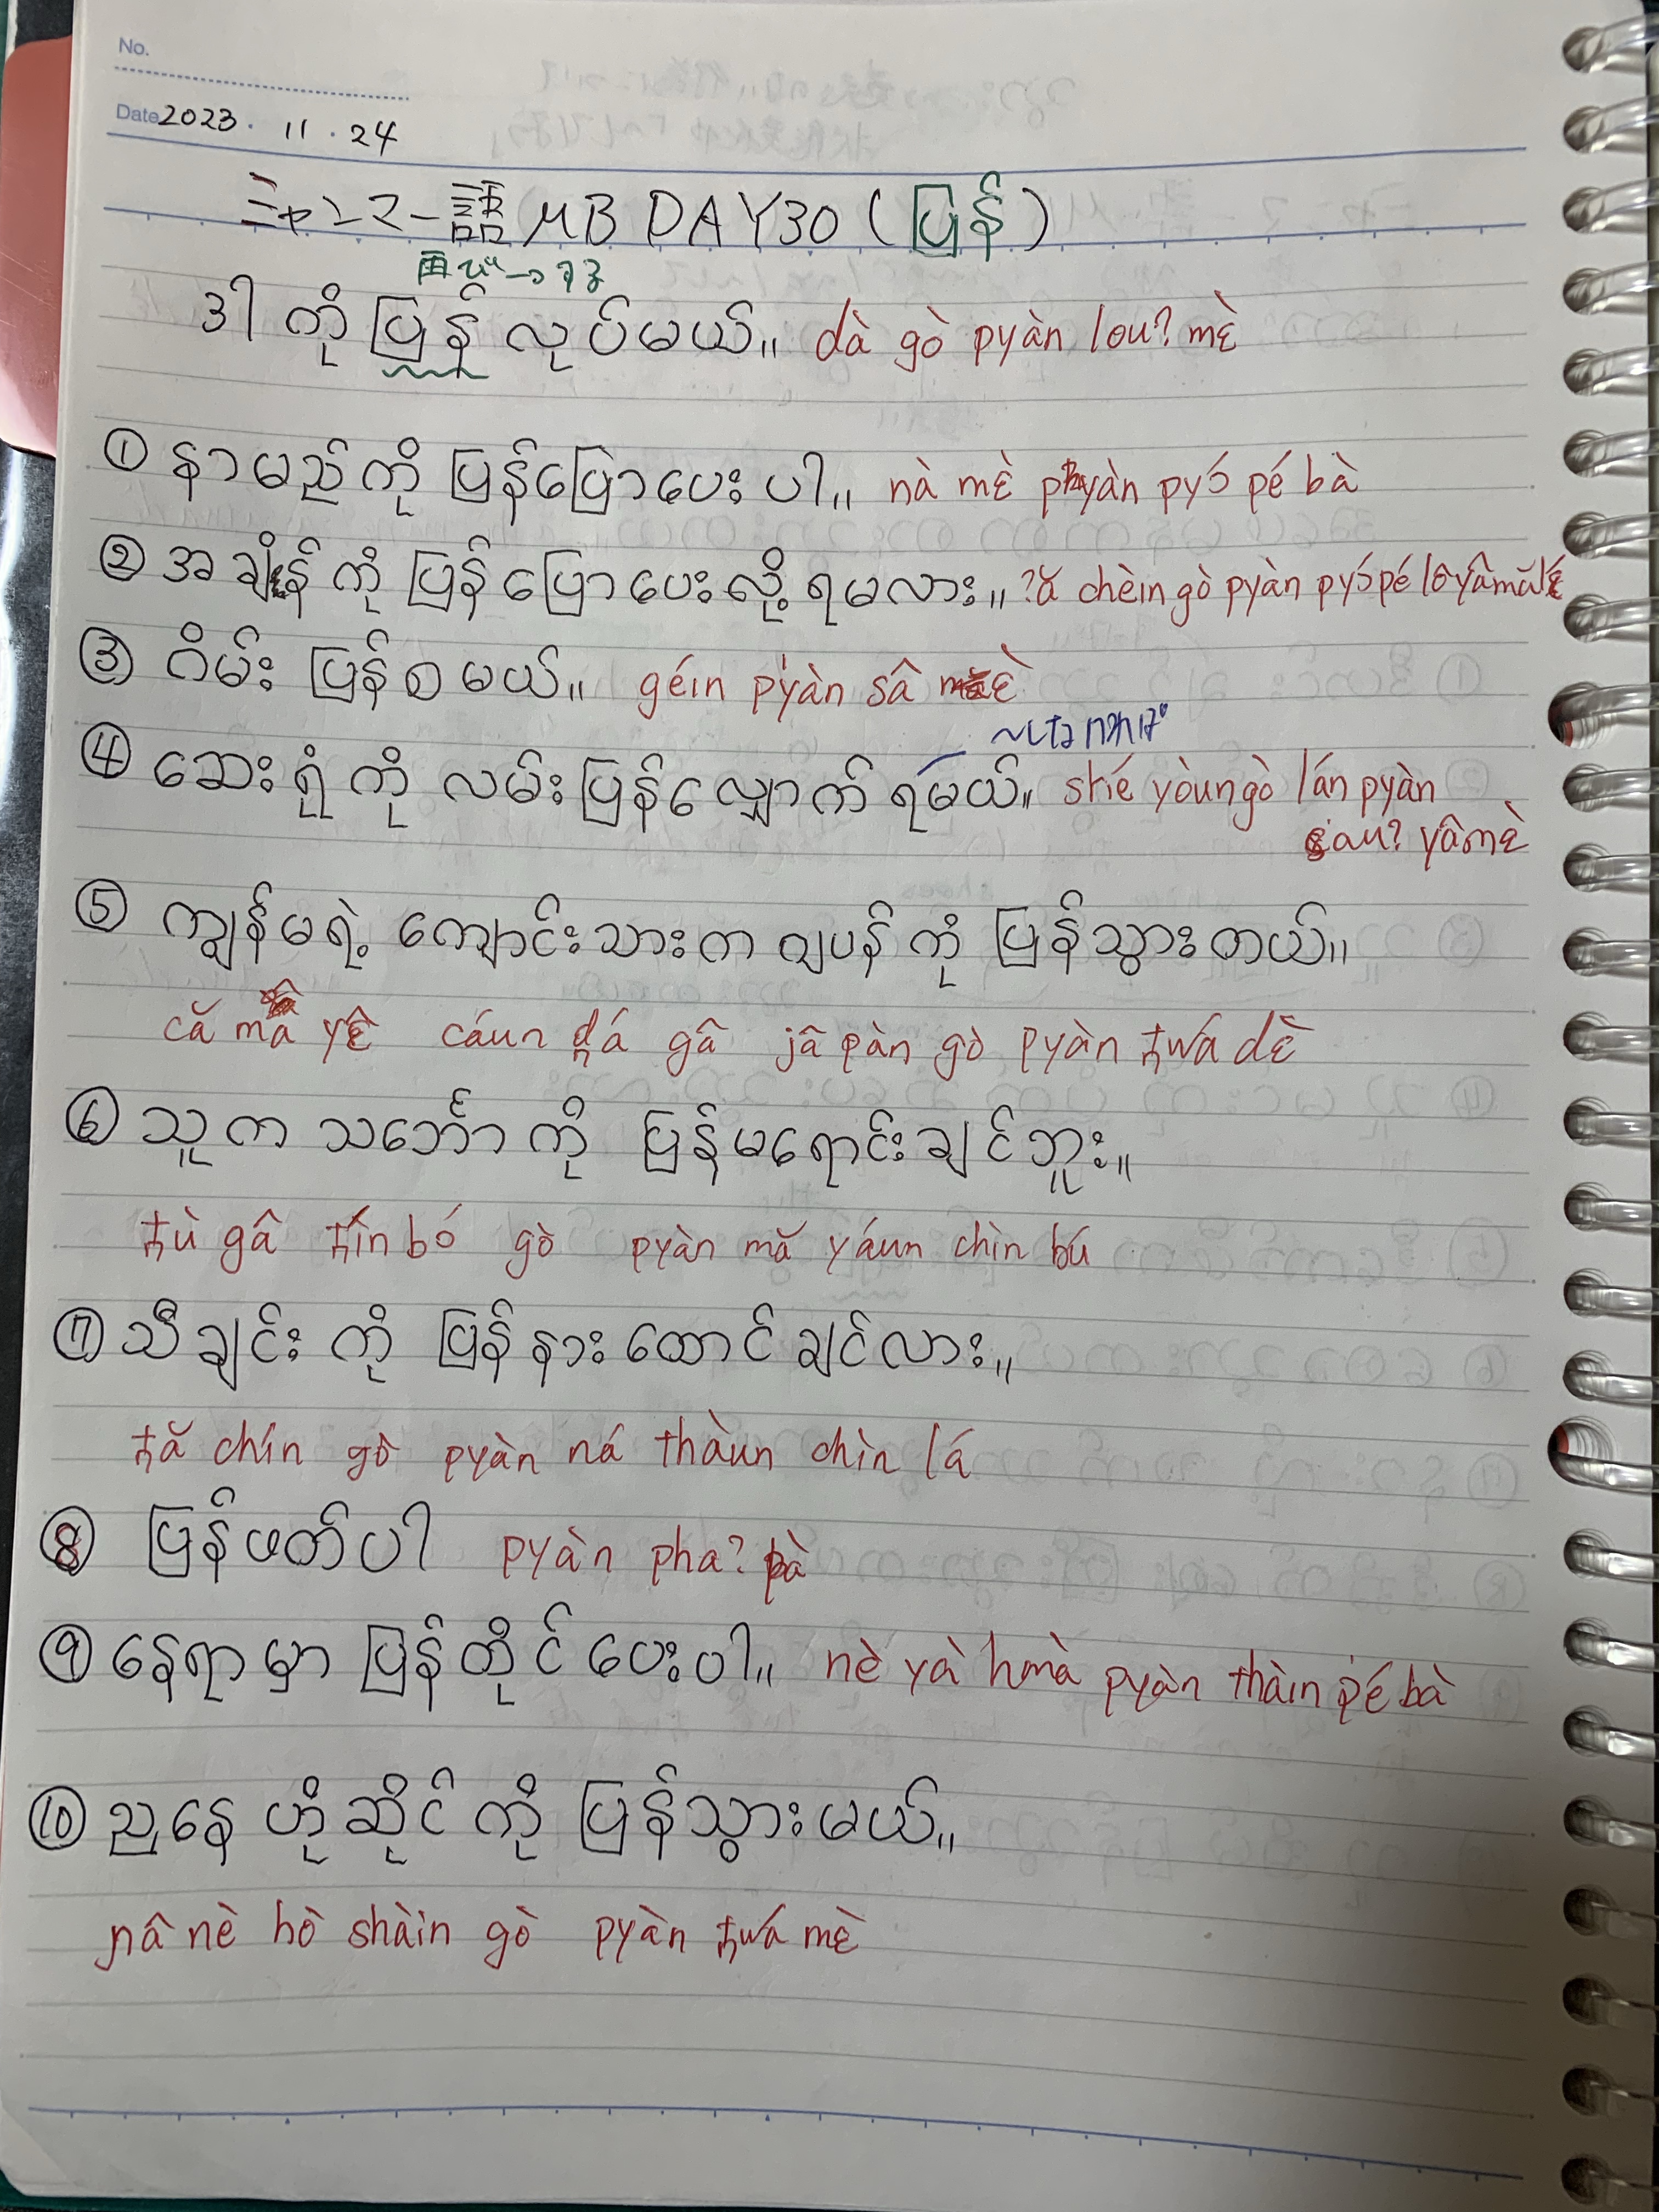 No.
Date 2023. 11. 24
ミャンマー語 MB DAY30 (ပြန်)
再び〜する
ဒါ ကို ပြန် လုပ်မယ်။ dà gò pyàn lou? mὲ
① နာမည်ကို ပြန်ပြောပေးပါ။ nà mὲ pyàn pyɔ́ pé bà
② အချိန်ကို ပြန်ပြောပေးလို့ရမလား။ ?ă chèin gò pyàn pyɔ́ pé lô yâ mălá
③ ဂိမ်း ပြန်စမယ်။ géin pyàn sâ mὲ
〜しなければ
④ ဆေးရုံကို လမ်းပြန်လျှောက်ရမယ်။ shé yòun gò lán pyàn
ɕau? yâmὲ
⑤ ကျွန်မရဲ့ ကျောင်းသားက ဂျပန်ကို ပြန်သွားတယ်။
că mâ yɛ̂ cáun d̪á gâ jâ pàn gò pyàn t̪wá dὲ
⑥ သူက သင်္ဘောကို ပြန်မရောင်းချင်ဘူး။
t̪ù gâ t̪ín bɔ́ gò pyàn mă yáun chìn bú
⑦ သီချင်းကို ပြန်နားထောင်ချင်လား။
t̪ă chín gò pyàn ná thàun chìn lá
⑧ ပြန်ဖတ်ပါ pyàn pha? pà
⑨ နေရာမှာ ပြန်တိုင်ပေးပါ။ nè yà hmà pyàn thàin pé bà
⑩ ညနေ ဟိုဆိုင်ကို ပြန်သွားမယ်။
ɲâ nè hò shàin gò pyàn t̪wá mὲ